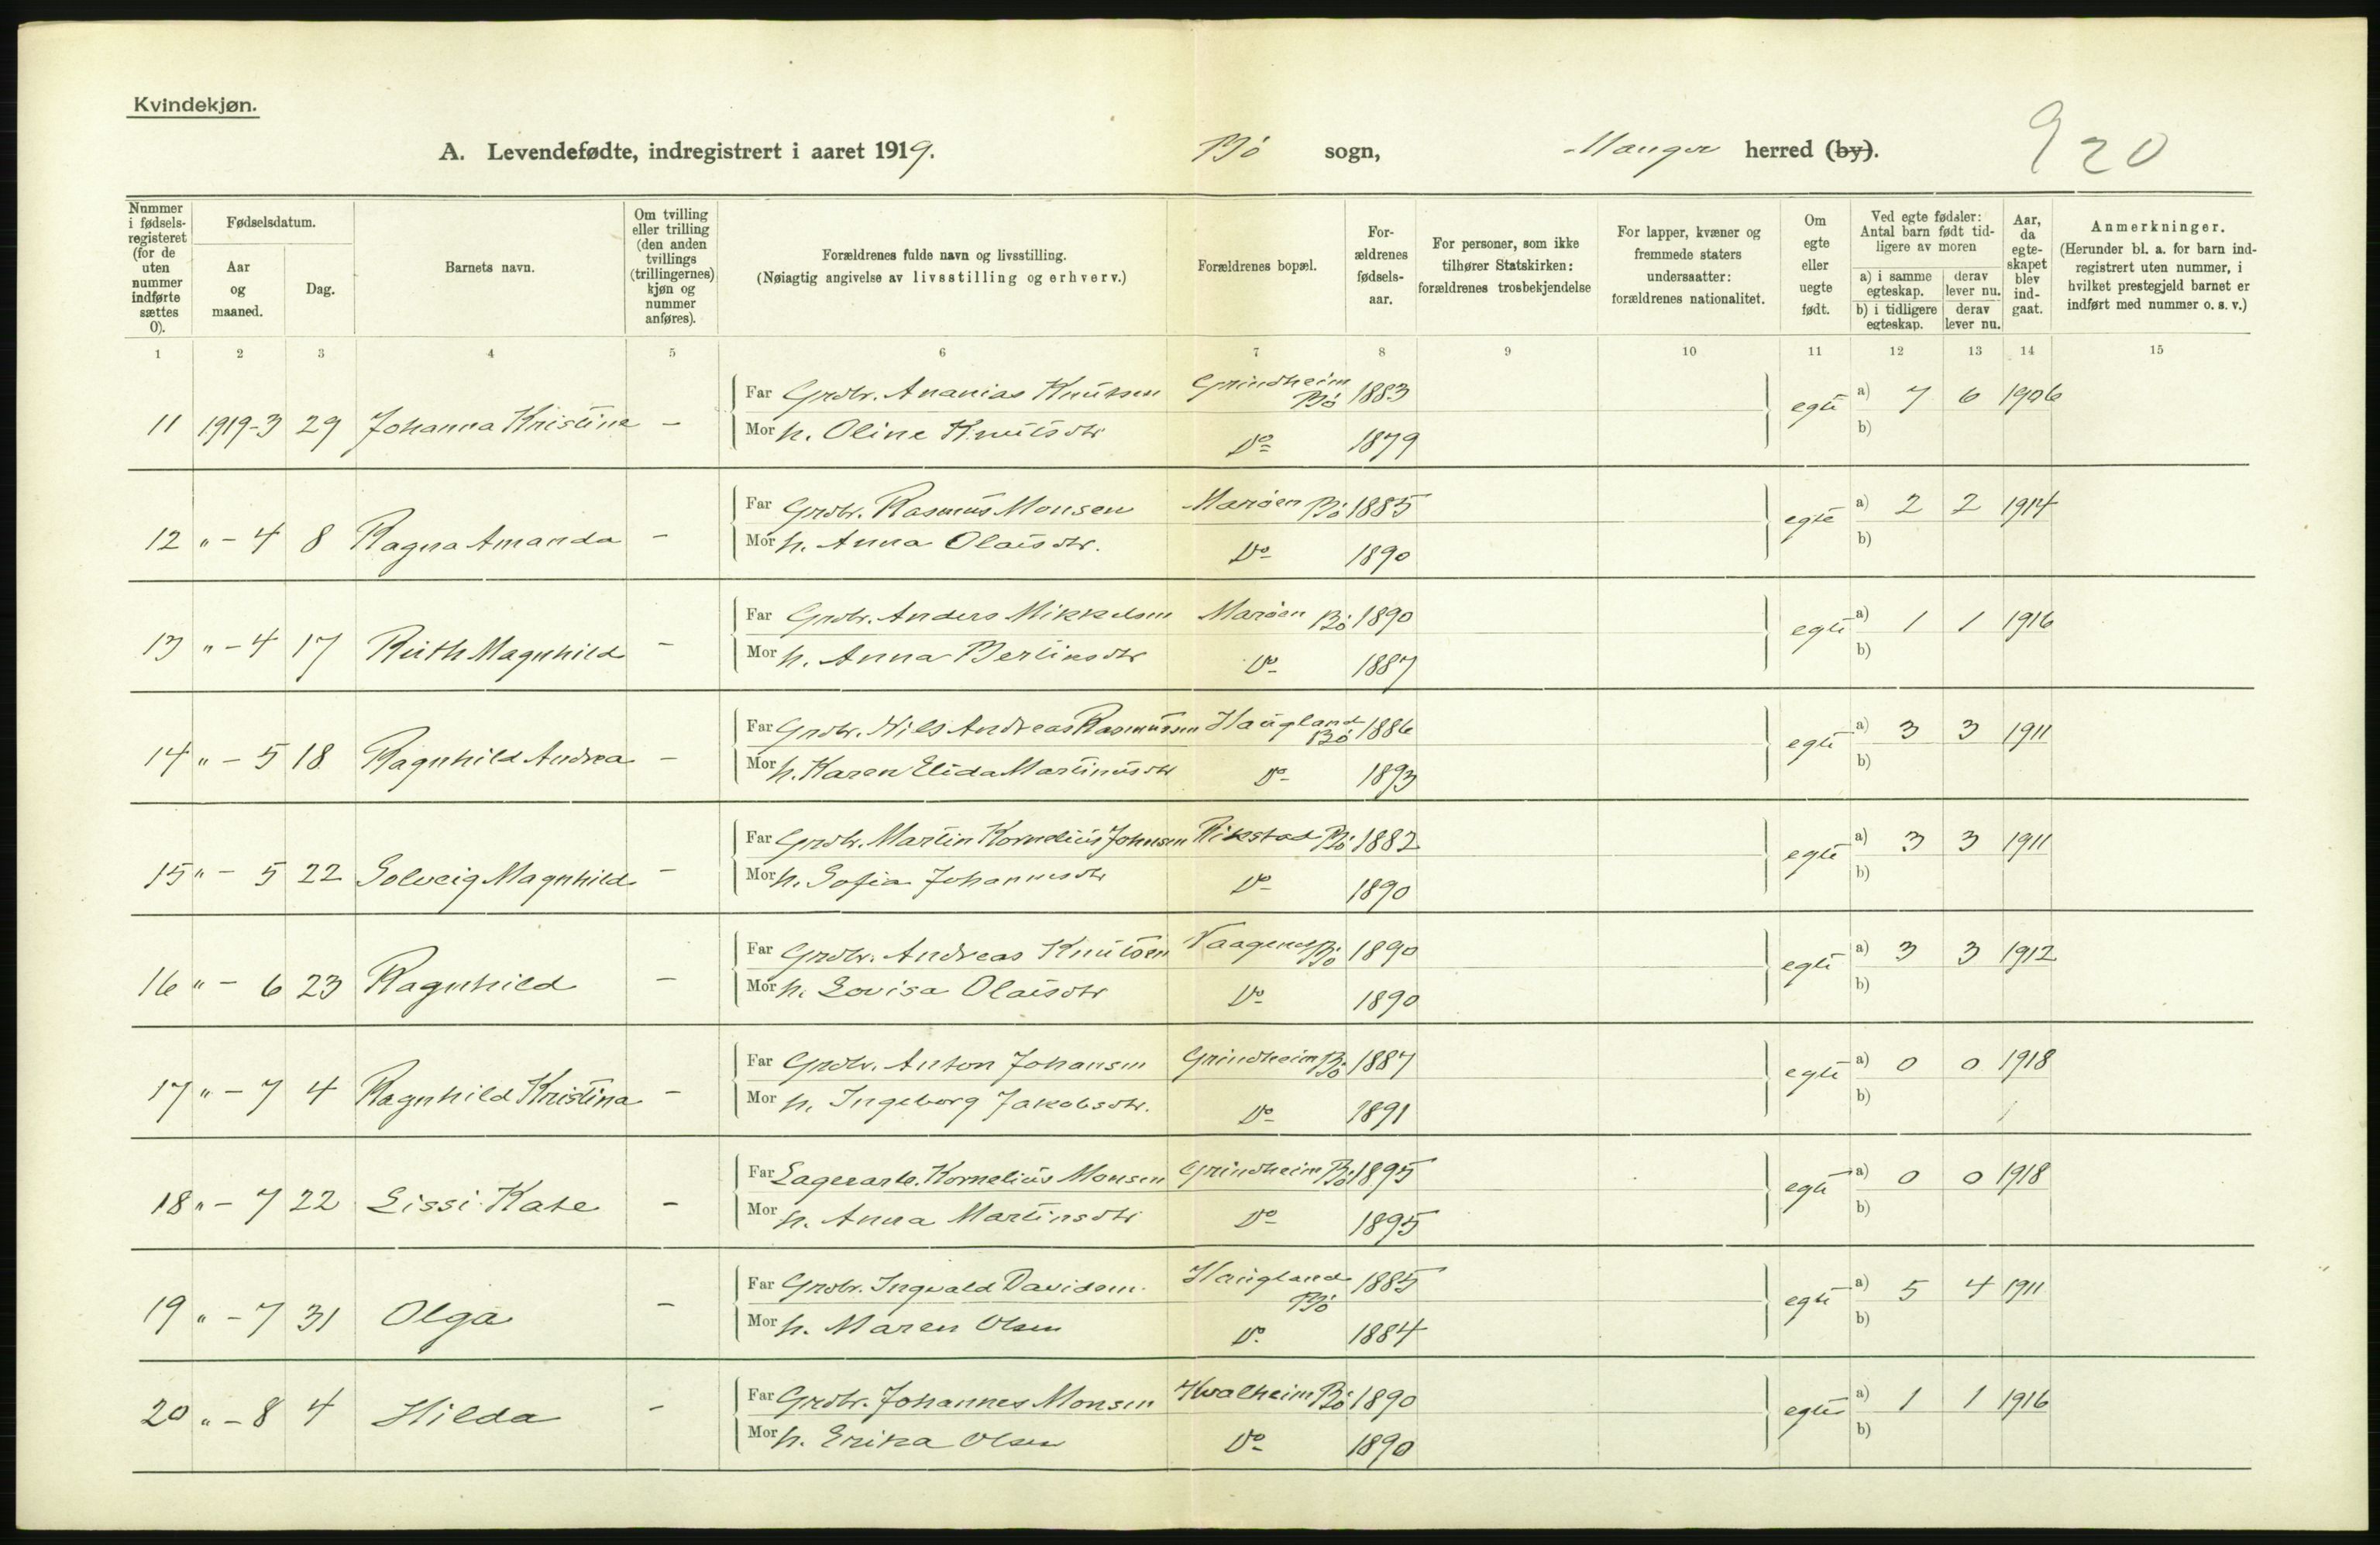 Kvindekjøn.
A. Levendefødte, indregistrert i aaret 1919. Bö sogn, Manger herred (by). 920
Nummer i fødselsregisteret (for de uten nummer indførte sættes 0).
Fødselsdatum.
Aar og maaned.
Dag.
Barnets navn.
Om tvilling eller trilling (den anden tvillings (trillingernes) kjøn og nummer anføres).
Forældrenes fulde navn og livsstilling.
(Nøiagtig angivelse av livsstilling og erhverv.)
Forældrenes bopæl.
Forældrenes fødselsaar.
For personer, som ikke tilhører Statskirken: forældrenes trosbekjendelse
For lapper, kvæner og fremmede staters undersaatter: forældrenes nationalitet.
Om egte eller uegte født.
Ved egte fødsler: Antal barn født tidligere av moren
a) i samme egteskap. derav lever nu.
b) i tidligere egteskap. derav lever nu.
Aar, da egteskapet blev indgaat.
Anmerkninger.
(Herunder bl. a. for barn indregistrert uten nummer, i hvilket prestegjeld barnet er indført med nummer o. s. v.)
1 2 3 4 5 6 7 8 9 10 11 12 13 14 15
Far Grdbr. Ananias Knutsen Grindheim Bö 1883 a) 7 6 1906
11 1919-3 29 Johanna Kristine - Mor h. Oline Knutsdtr Do 1879 egte b)
Far Grdbr. Rasmus Monsen Maröen Bö 1885 a) 2 2 1914
12 " - 4 8 Ragna Amanda - Mor h. Anna Olaisdtr. Do 1890 egte b)
Far Grdbr. Anders Mikkelsen Maröen Bö 1890 a) 1 1 1916
13 " - 4 17 Ruth Magnhild - Mor h. Anna Bertinsdtr Do 1887 egte b)
Far Grdbr. Nils Andreas Rasmussen Haugland Bö 1886 a) 3 3 1911
14 " - 5 18 Ragnhild Andrea - Mor h. Karen Elida Martinusdtr Do 1893 egte b)
Far Grdbr. Martin Kornelius Johnsen Rikstad Bö 1882 a) 3 3 1911
15 " - 5 22 Solveig Magnhild - Mor h. Sofia Johannesdtr Do 1890 egte b)
Far Grdbr. Andreas Knutsen Vaagenes Bö 1890 a) 3 3 1912
16 " - 6 23 Ragnhild - Mor h. Lovisa Olaisdtr Do 1890 egte b)
Far Grdbr. Anton Johansen Grindheim Bö 1887 a) 0 0 1918
17 " - 7 4 Ragnhild Kristina - Mor h. Ingeborg Jakobsdtr. Do 1891 egte b)
Far Lagerarb. Kornelius Monsen Grindheim Bö 1895 a) 0 0 1918
18 " - 7 22 Lissi Kate - Mor h. Anna Martinsdtr Do 1895 egte b)
Far Grdbr. Ingvald Davidsen. Haugland Bö 1885 a) 5 4 1911
19 " - 7 31 Olga - Mor h. Maren Olsen Do 1884 egte b)
Far Grdbr. Johannes Monsen Hvalheim Bö 1890 a) 1 1 1916
20 " - 8 4 Hilda - Mor h. Erika Olsen Do 1890 egte b)